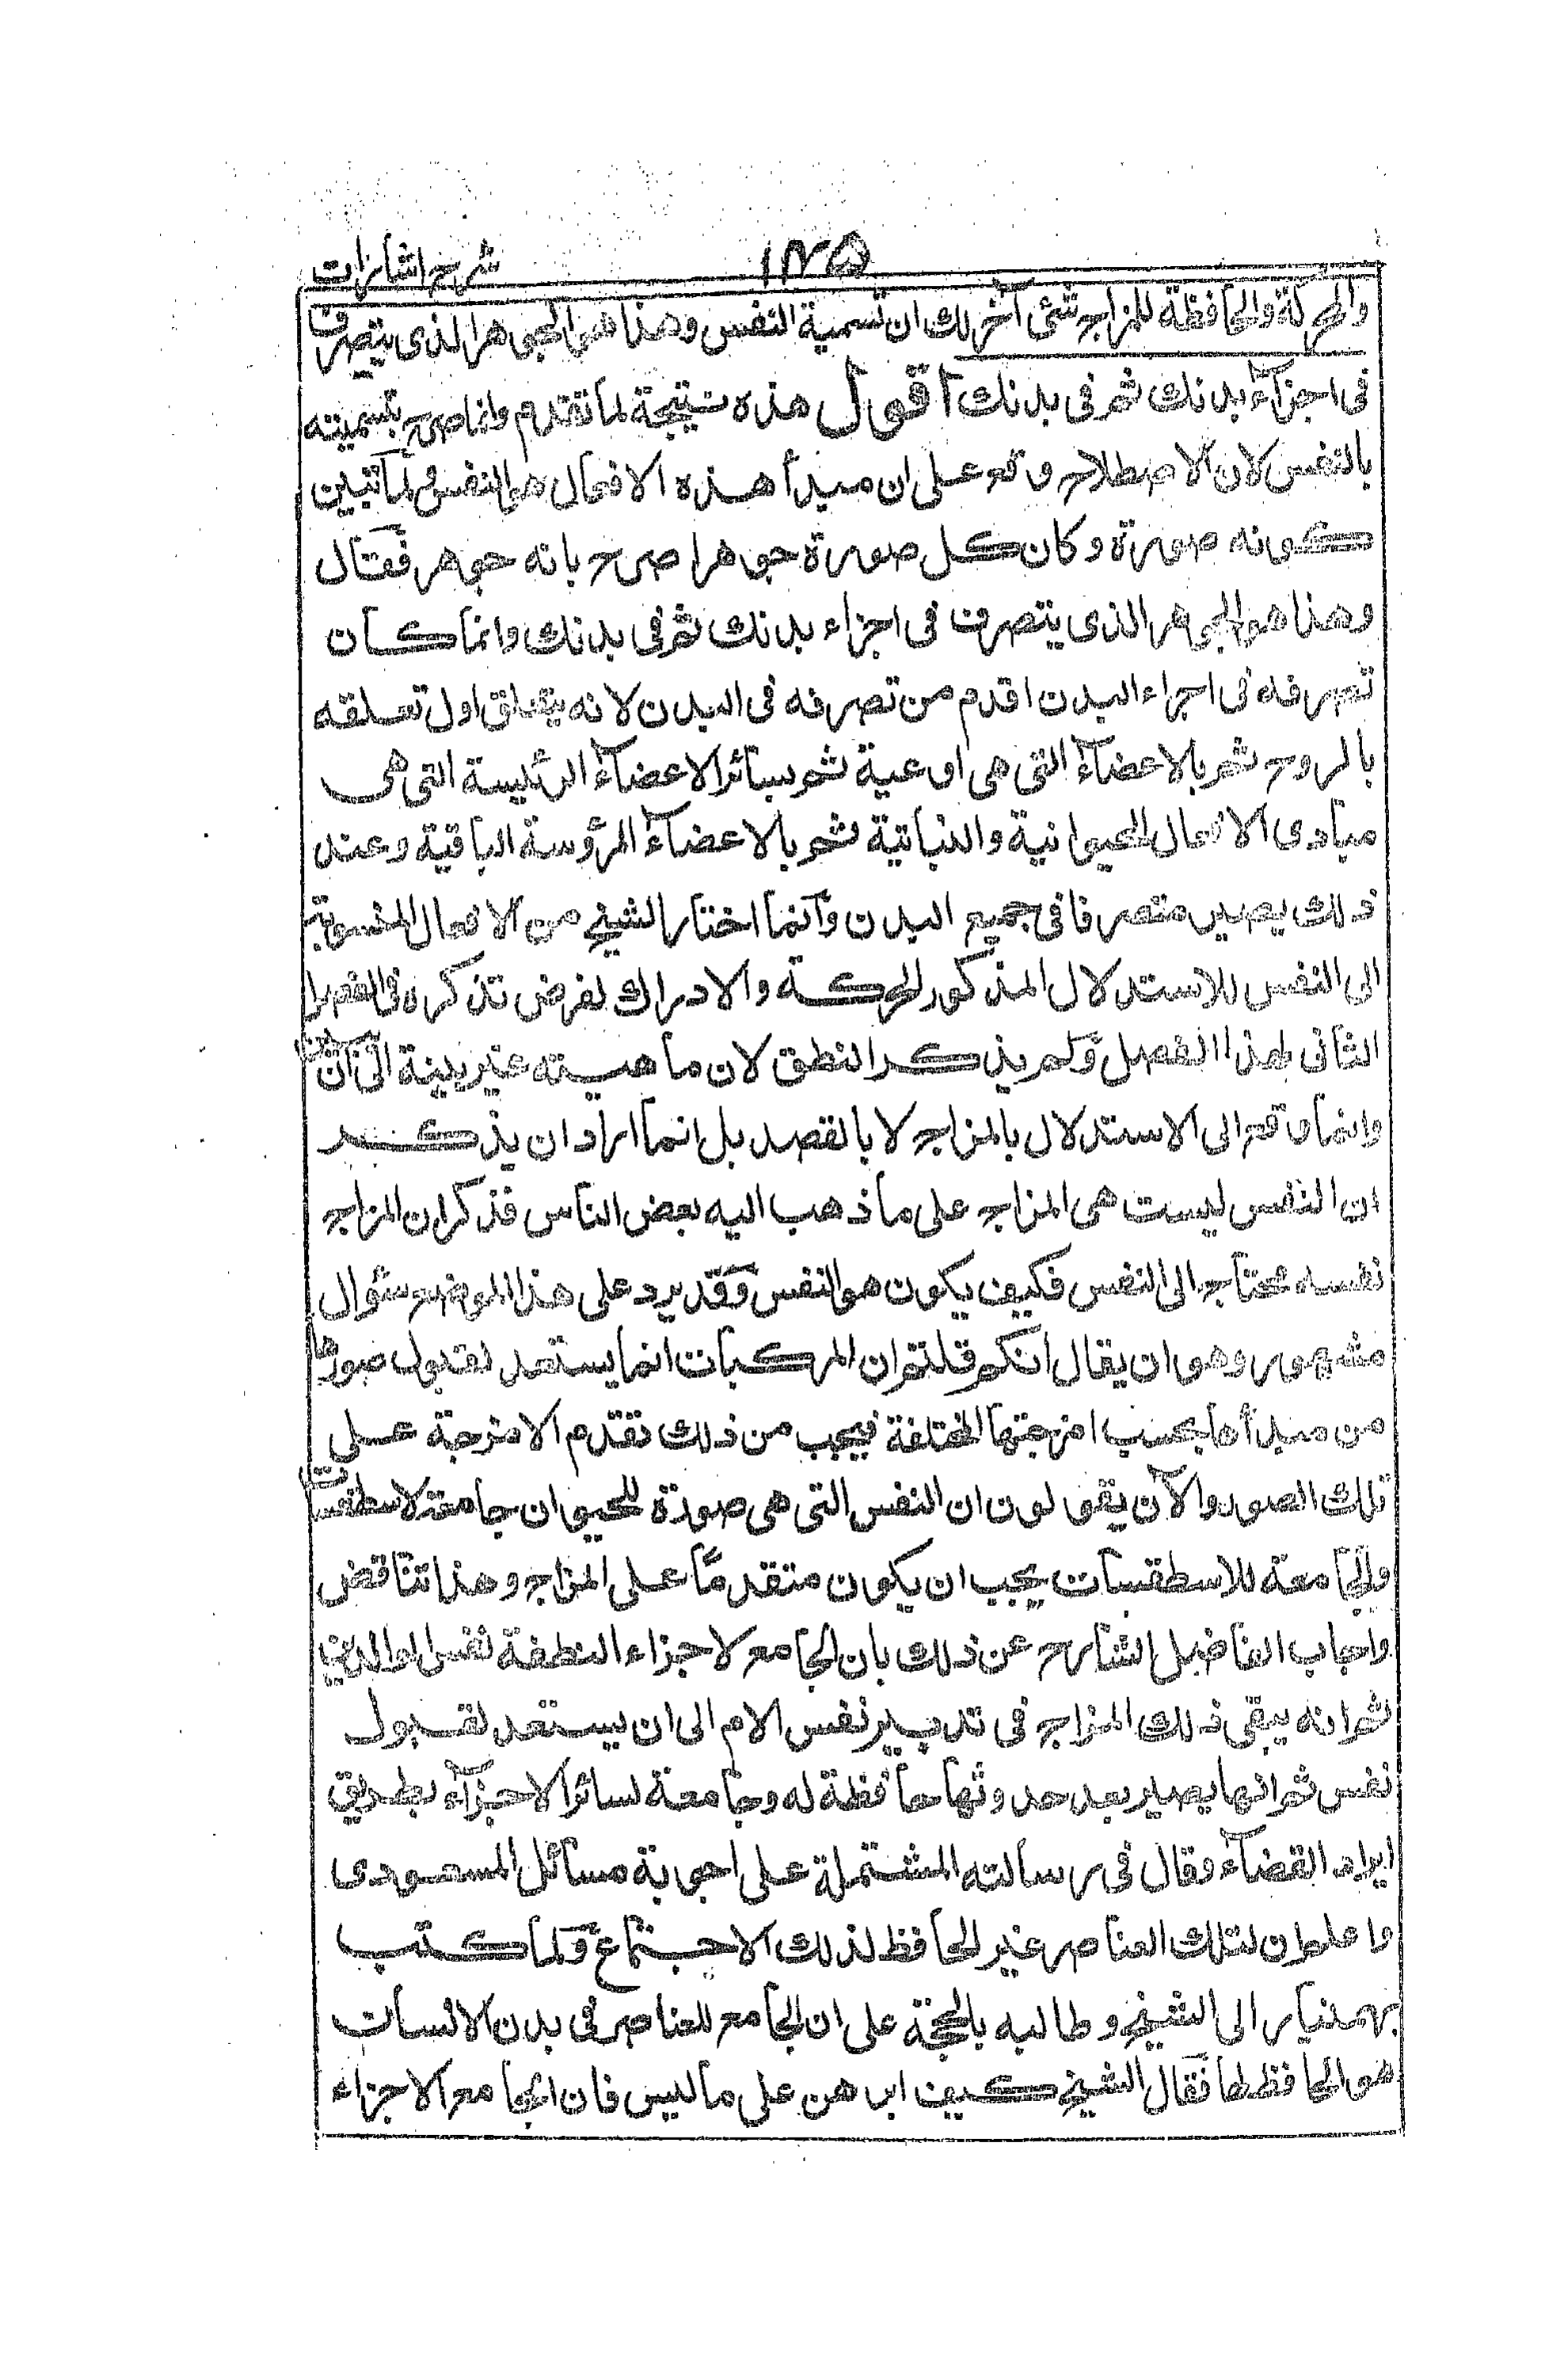 شرح اشارات
١٢٥
والمحركة والحافظة للمزاج شئ آخر لك ان تسمية النفس وهذا هو الجوهر الذى يتصرف
فى اجزآء بدنك ثم فى بدنك اقول هذه نتيجة لما تقدم وانما صرح بتسميته
بالنفس لان الاصطلاح وقع على ان مبدأ هذه الافعال هو النفس ولما تبين
كونه صورة وكان كل صورة جوهرا صرح بانه جوهر فقال
وهذا هو الجوهر الذى يتصرف فى اجزاء بدنك ثم فى بدنك وانما كان
تصرفه فى اجزاء البدن اقدم من تصرفه فى البدن لانه يتعلق اول تعلقه
بالروح ثم بالاعضآء التى هى اوعية ثم بسائر الاعضآء الرئيسة التى هى
مبادى الافعال الحيوانية والنباتية ثم بالاعضآء المرؤسة الباقية وعند
ذلك يصير متصرفا فى جميع البدن وآنما اختار الشيخ من الافعال المنسوبة
الى النفس للاستدلال المذكور الحركة والادراك لغرض تذكره فى الفصل
الثانى لهذا الفصل ولم يذكر النطق لان ماهيته غير بينة الى الآن
وانما وقع الى الاستدلال بالمزاج لا بالقصد بل انما اراد ان يذكر
ان النفس ليست هى المزاج على ما ذهب اليه بعض الناس فذكر ان المزاج
نفسه محتاج الى النفس فكيف يكون هو النفس وقد يرد على هذا الموضع سؤال
مشهور وهو ان يقال انكم قلتم ان المركبات انما يستعد لقبول صورها
من مبدأها بحسب امزجتها المختلفة فيجب من ذلك تقدم الامزجة على
تلك الصور والآن يقولون ان النفس التى هى صورة للحيوان جامعة لاسطقسات
والجامعة للاسطقسات يجب ان يكون متقدمًا على المزاج وهذا تناقض
واجاب الفاضل الشارح عن ذلك بان الجامع لاجزاء النطفة نفس الوالدين
ثم انه يبقى ذلك المزاج فى تدبير نفس الام الى ان يستعد لقبول
نفس ثم انها يصير بعد حدوثها حافظة له وجامعة لسائر الاجزآء بطريق
ايراد القضآء وقال فى رسالته المشتملة على اجوبة مسائل المسعودى
واعلم ان لتلك العناصر غير الحافظ لذلك الاجتماع ولما كتب
بهمنيار الى الشيخ وطالبه بالحجة على ان الجامع للعناصر فى بدن الانسان
هو الحافظ لها فقال الشيخ كيف ابرهن على ما ليس فان الجامع الاجزاء